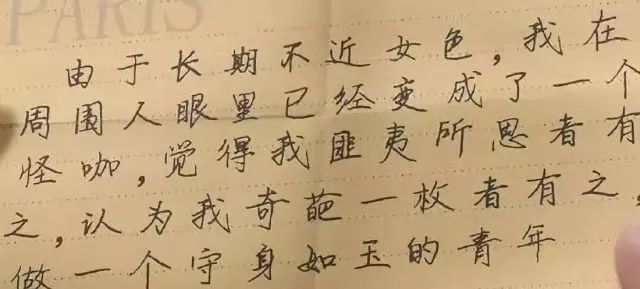 PARIS
由于长期不近女色，我在
周围人眼里已经变成了一个
怪咖，觉得我匪夷所思者有
之，认为我奇葩一枚者有之，
做一个守身如玉的青年